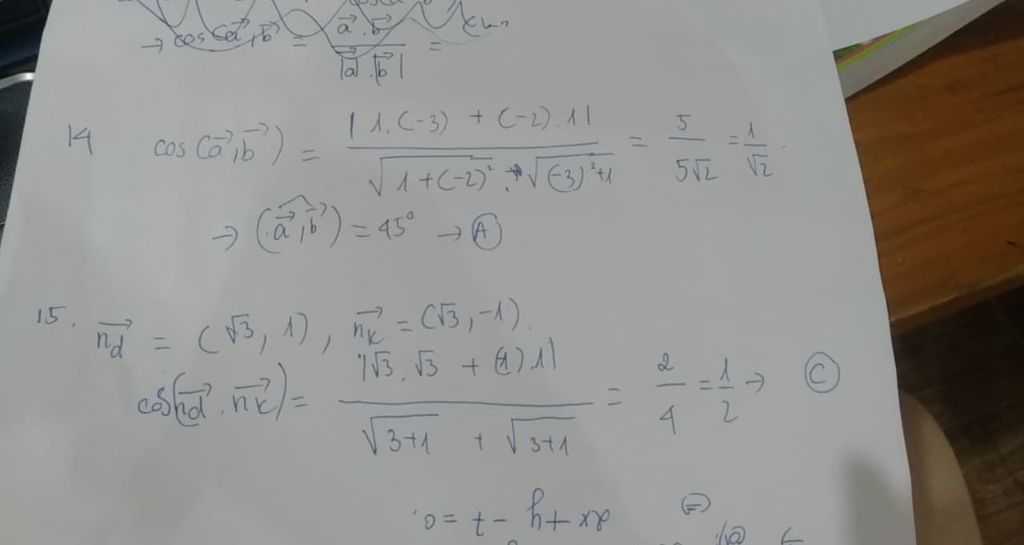 → cos(a⃗,b⃗) = a⃗.b⃗ / |a⃗|.|b⃗| =
14 cos(a⃗,b⃗) = |1.(-3) + (-2).1| / √(1+(-2)²) . √((-3)²+1) = 5 / 5√2 = 1/√2.
→ (a⃗,b⃗) = 45° → Ⓐ
15. n⃗d = (√3, 1), n⃗k = (√3, -1).
cos(n⃗d . n⃗k) = |√3.√3 + (-1).1| / √(3+1) + √(3+1) = 2/4 = 1/2 → Ⓒ